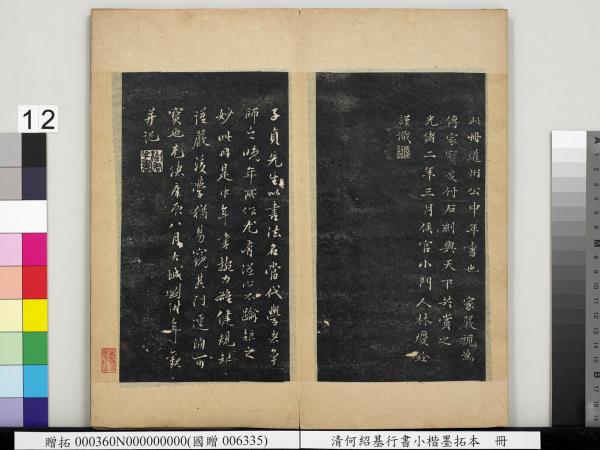 此冊道州公中年書也 家嚴視為
傳家寶爰付石刻與天下共賞之
光緒二年三月侯官小門人林慶銓
謹識
子貞先生以書法名當代學者爭
師之晚年所作尤有從心不踰矩之
妙此冊是中年書擬力穩健規矩
謹嚴後學猶易窺其門逕洵可
寶也光緒庚辰八月大城劉溎年觀
并記
12
贈拓 000360N000000000(國贈 006335)
清何紹基行書小楷墨拓本 冊
A
1
2
3
4
5
6
7
8
9
10
11
12
13
14
15
B
17
18
19